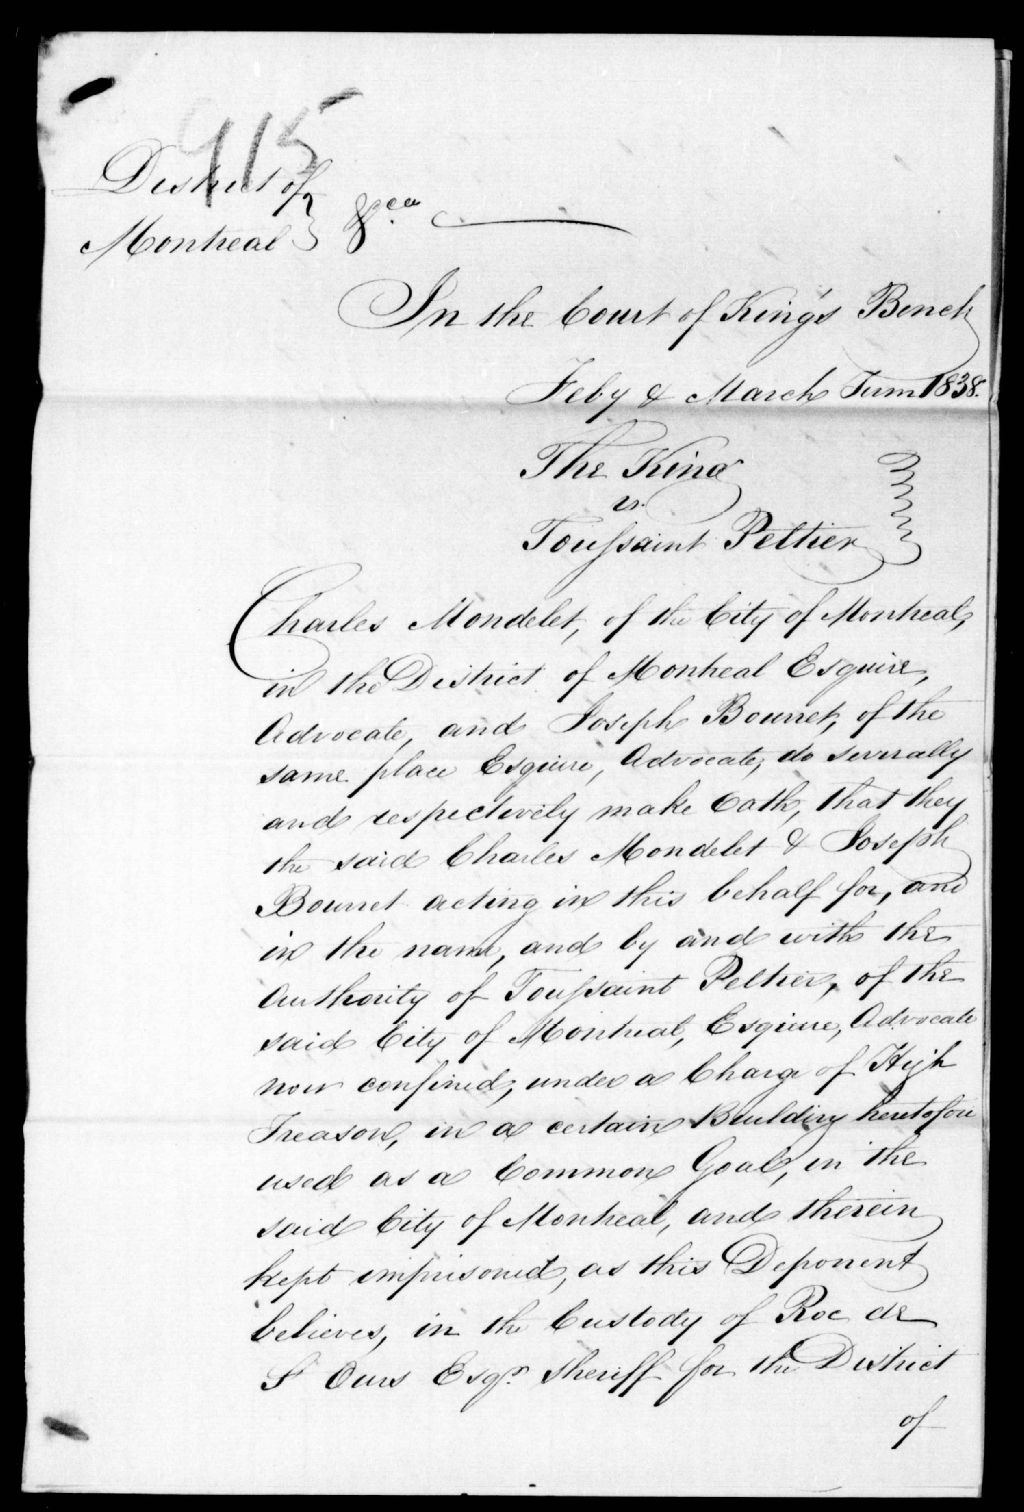 915
District of
Montreal &ca
In the Court of King's Bench
Feby & March Term 1838.
The King
vs.
Toussaint Peltier
Charles Mondelet, of the City of Montreal,
in the District of Montreal Esquire,
Advocate, and Joseph Bourret, of the
same place Esquire, Advocate, do severally
and respectively make Oath, that they
the said Charles Mondelet & Joseph
Bourret acting in this behalf for, and
in the name, and by and with the
Authority of Toussaint Peltier, of the
said City of Montreal, Esquire, Advocate
now confined, under a Charge of High
Treason, in a certain Building heretofore
used as a Common Goal, in the
said City of Montreal, and therein
kept imprisoned, as this Deponent
believes, in the Custody of Roc de
St Ours Esqr. Sheriff for the District
of